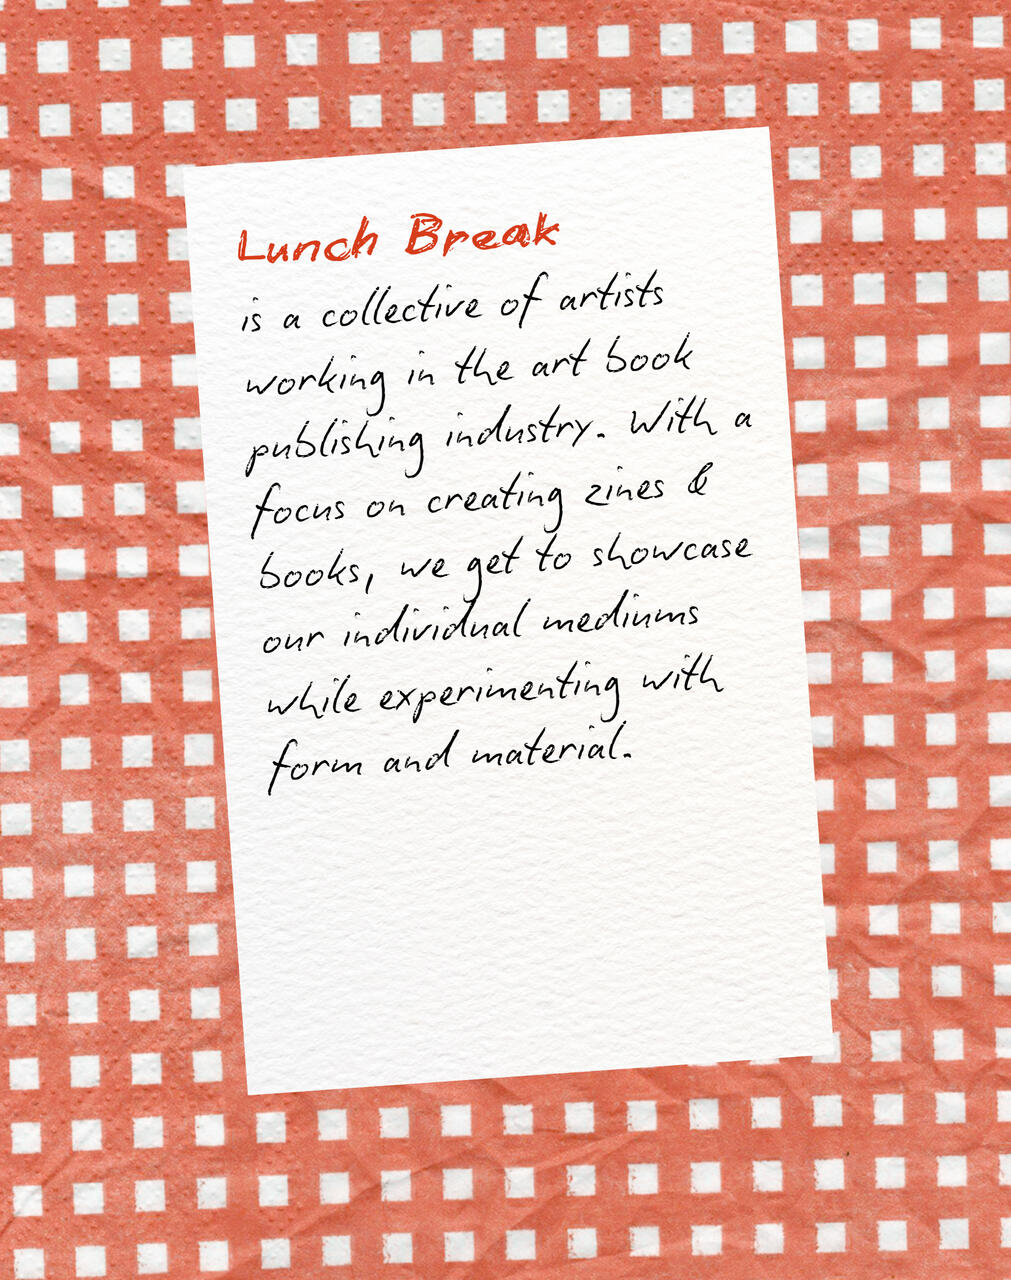 Lunch Break
is a collective of artists
working in the art book
publishing industry. With a
focus on creating zines &
books, we get to showcase
our individual mediums
while experimenting with
form and material.